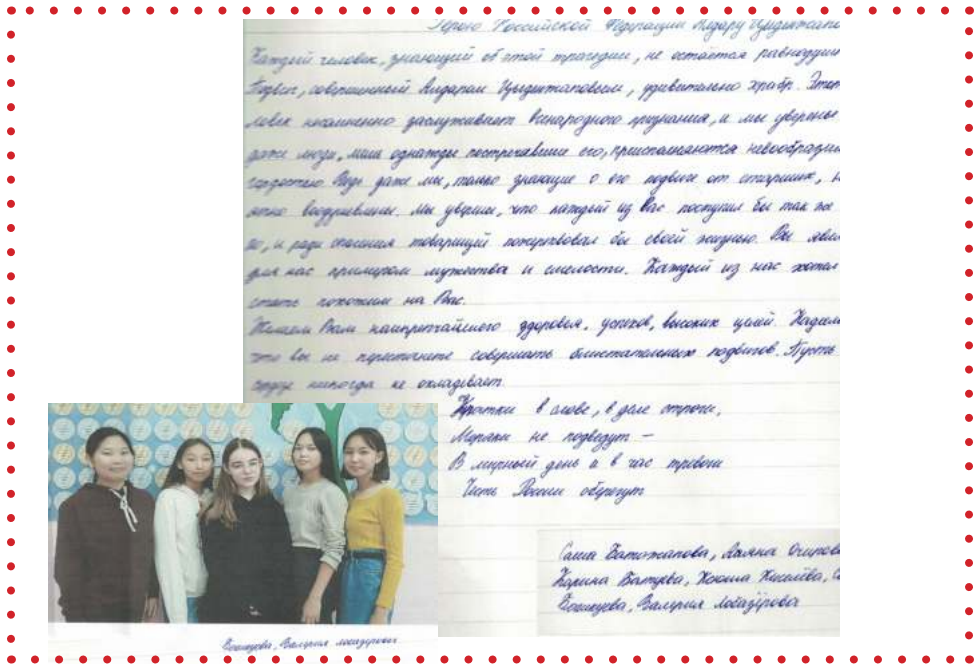 Герою Российской Федерации Алдару Цыденжапо
Каждый человек, знающий об этой трагедии, не остаётся равнодушн
Подвиг, совершенный Алдаром Цыденжаповым, удивительно храбр. Этот
ловек несомненно заслуживает всенародного признания, и мы уверены
даже люди, лишь однажды повстречавшие его, преисполняются невообрази
гордостью. Ведь даже мы, только знающие о его подвиге от старших,
воодушевлены. Мы уверены, что каждый из Вас поступил бы так же
но, и ради спасения товарищей пожертвовал бы своей жизнью. Вы явл
для нас примером мужества и смелости. Каждый из нас хотел
стать похожим на Вас.
Желаем Вам наикрепчайшего здоровья, успехов, высоких целей. Надеем
что вы не перестанете совершать блистательных подвигов. Пусть
сердце никогда не охладевает.
Кратки в слове, в деле строги,
Моряки не подведут —
В мирный день и в час тревоги
Честь России сберегут
Саша Батожапова, Аляна Очирова
Карина Батуева, Ксюша Киселёва, С
Бошкуева, Валерия Лобазерова
Бошкуева, Валерия Лобазерова